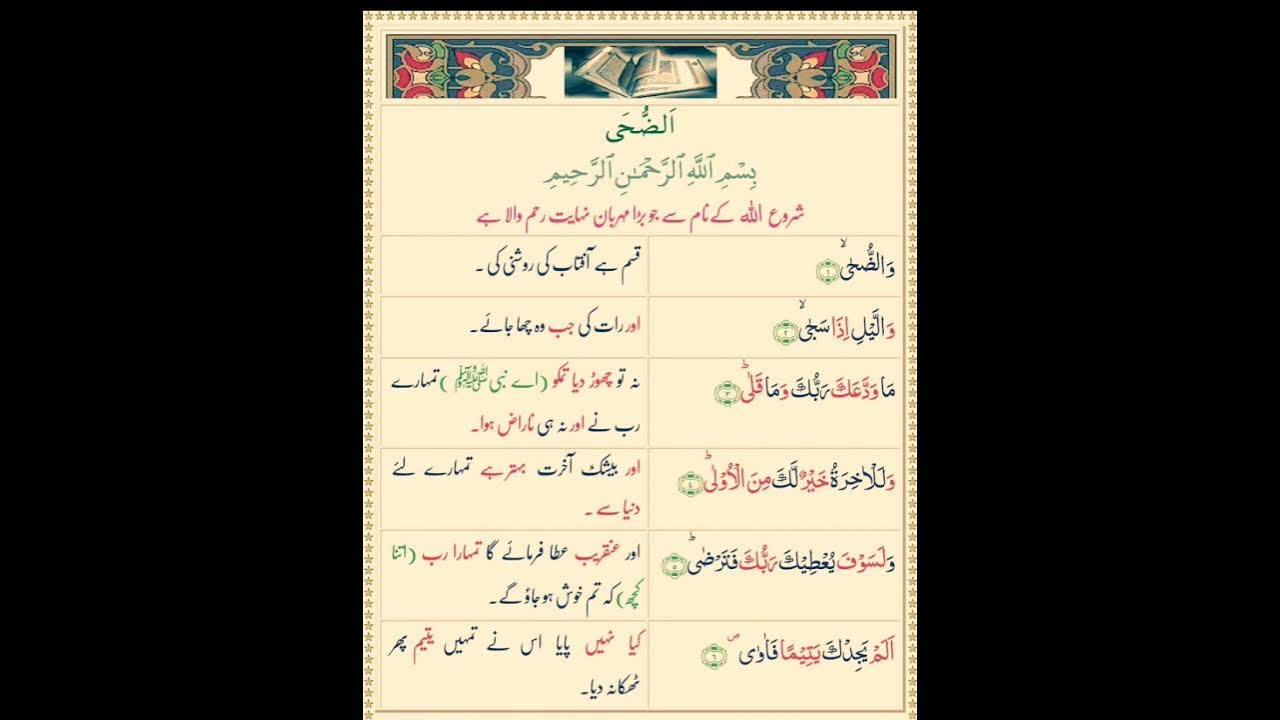 اَلضُّحَى
بِسْمِ ٱللَّهِ ٱلرَّحْمَـٰنِ ٱلرَّحِيمِ
شروع اللہ کے نام سے جو بڑا مہربان نہایت رحم والا ہے
وَالضُّحٰىۙ ۝١
قسم ہے آفتاب کی روشنی کی ۔
وَالَّيْلِ اِذَا سَجٰىۙ ۝٢
اور رات کی جب وہ چھا جائے۔
مَا وَدَّعَكَ رَبُّكَ وَمَا قَلٰىؕ ۝٣
نہ تو چھوڑ دیا تمکو (اے نبی ﷺ ) تمہارے
رب نے اور نہ ہی ناراض ہوا۔
وَلَلْاٰخِرَةُ خَيْرٌ لَّكَ مِنَ الْاُوْلٰىؕ ۝٤
اور بیشک آخرت بہتر ہے تمہارے لئے
دنیا سے ۔
وَلَسَوْفَ يُعْطِيْكَ رَبُّكَ فَتَرْضٰىؕ ۝٥
اور عنقریب عطا فرمائے گا تمہارا رب (اتنا
کچھ) کہ تم خوش ہو جاؤ گے۔
اَلَمْ يَجِدْكَ يَتِيْمًا فَاٰوٰى۪ ۝٦
کیا نہیں پایا اس نے تمہیں یتیم پھر
ٹھکانہ دیا۔